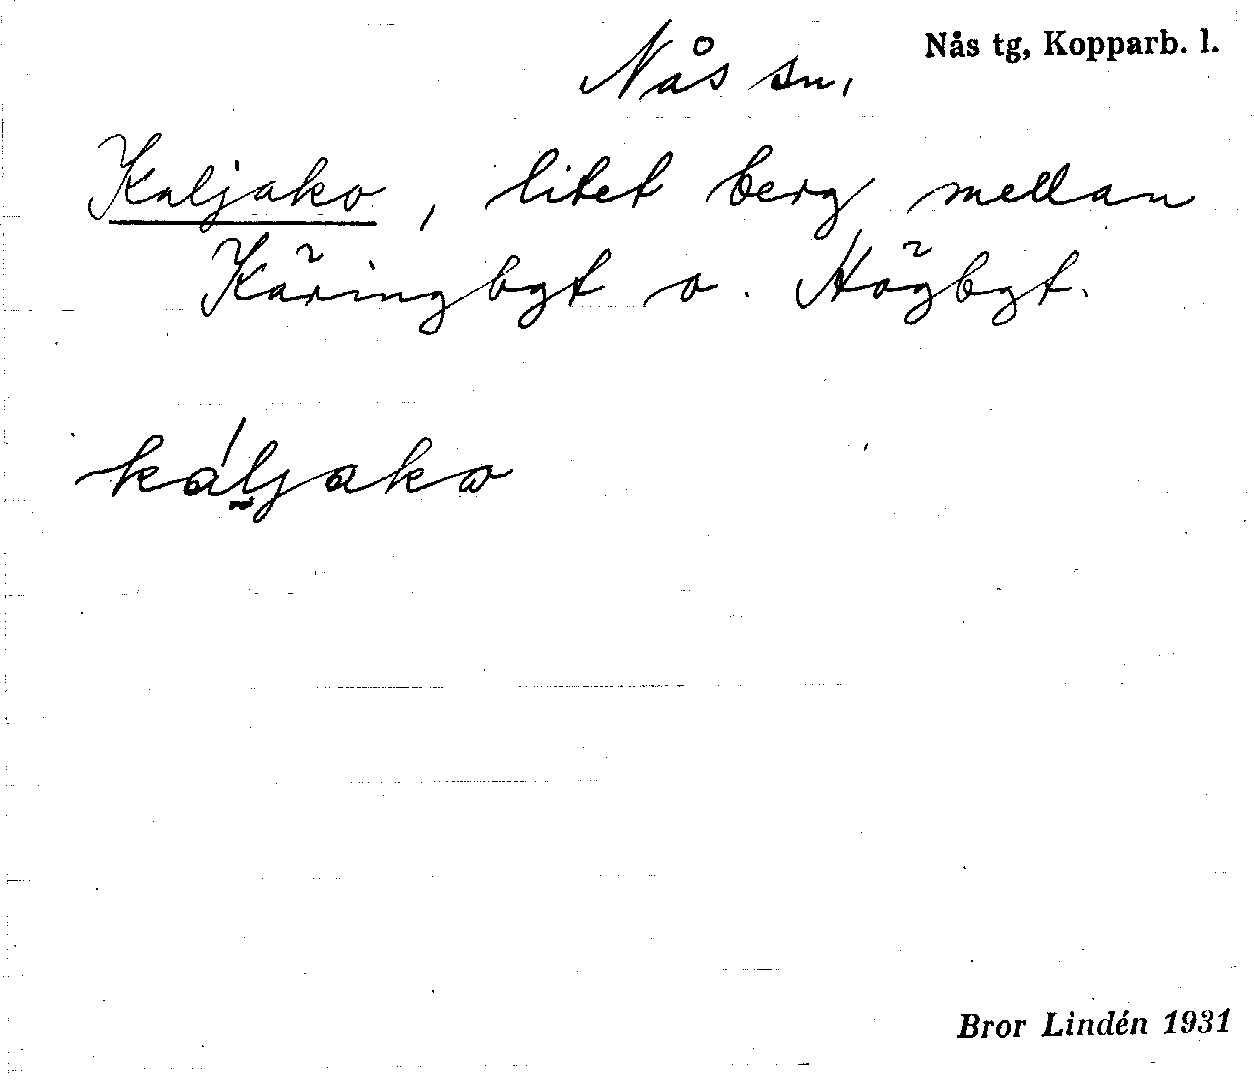 Nås tg, Kopparb. l.
Nås sn,
Kaljako, litet berg mellan
Käringbgt o. Högbgt.
káljako
Bror Lindén 1931